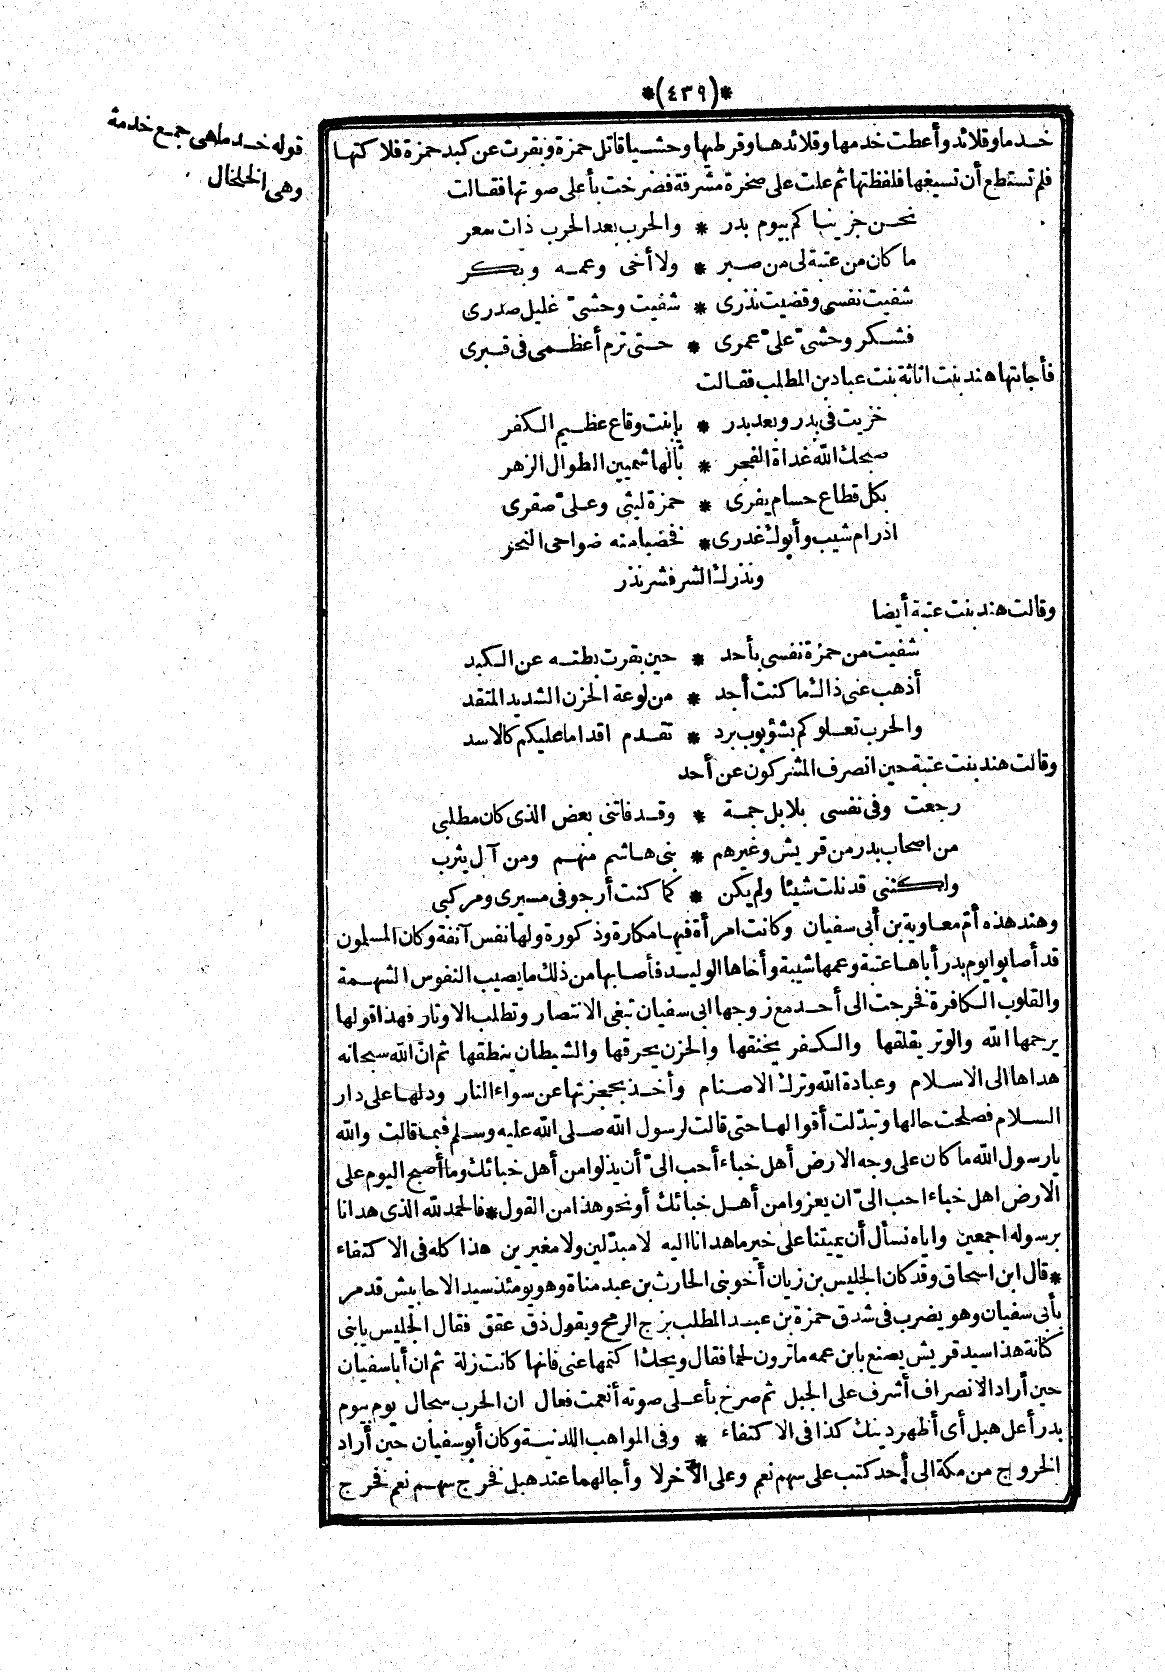 *(٤٣٩)*
خدما وقلائد وأعطت خدمها وقلائدها وقرطيها وحشيا قاتل حمزة وبقرت عن كبد حمزة فلاكتها
فلم تستطع أن تسيغها فلفظتها ثم علت على صخرة مشرفة فصرخت بأعلى صوتها فقالت
نحن جزيناكم بيوم بدر * والحرب بعد الحرب ذات سعر
ما كان من عتبة لى من صبر * ولا أخى وعمه وبكر
شفيت نفسى وقضيت نذرى * شفيت وحشىّ غليل صدرى
فشكر وحشىّ علىّ عمرى * حتى ترم أعظمى فى قبرى
فأجابتها هند بنت اثاثة بنت عباد بن المطلب فقالت
خزيت فى بدر وبعد بدر * يا بنت وقاع عظيم الكفر
صبحك الله غداة الفجر * بالهاشميين الطوال الزهر
بكل قطاع حسام يفرى * حمزة ليثى وعلىّ صقرى
اذ رام شيب وأبوك غدرى * فخضبا منه ضواحى النحر
ونذرك الشر فشر نذر
وقالت هند بنت عتبة أيضا
شفيت من حمزة نفسى بأحد * حين بقرت بطنه عن الكبد
أذهب عنى ذاك ما كنت أجد * من لوعة الحزن الشديد المتقد
والحرب تعلوكم بشؤبوب برد * تقدم اقداما عليكم كالاسد
وقالت هند بنت عتبة حين انصرف المشركون عن أحد
رجعت وفى نفسى بلابل جمة * وقد فاتنى بعض الذى كان مطلبى
من اصحاب بدر من قريش وغيرهم * بنى هاشم منهم ومن آل يثرب
ولكننى قد نلت شيئا ولم يكن * كما كنت أرجو فى مسيرى ومركبى
وهند هذه أمّ معاوية بن أبى سفيان وكانت امرأة فيها مكارة وذكورة ولها نفس آنفة وكان المسلمون
قد أصابوا يوم بدر أباها عتبة وعمها شيبة وأخاها الوليد فأصابها من ذلك ما يصيب النفوس الشهمة
والقلوب الكافرة فخرجت الى أحد مع زوجها ابى سفيان تبغى الانتصار وتطلب الاوتار فهذا قولها
يرحمها الله والوتر يقلقها والكفر يخنقها والحزن يحرقها والشيطان ينطقها ثم انّ الله سبحانه
هداها الى الاسلام وعبادة الله وترك الاصنام وأخذ بحجزتها عن سواء النار ودلها على دار
السلام فصلحت حالها وتبدّلت أقوالها حتى قالت لرسول الله صلى الله عليه وسلم فيما قالت والله
يا رسول الله ما كان على وجه الارض أهل خباء أحب الىّ أن يذلوا من أهل خبائك وما أصبح اليوم على
الارض اهل خباء احب الىّ ان يعزوا من أهل خبائك أو نحو هذا من القول * فالحمد لله الذى هدانا
برسوله اجمعين واياه نسأل أن يميتنا على خير ما هدانا اليه لا مبدّلين ولا مغيرين هذا كله فى الاكتفاء
* قال ابن اسحاق وقد كان الجليس بن زيان أخو بنى الحارث بن عبد مناة وهو يومئذ سيد الاحابيش قد مر
بأبى سفيان وهو يضرب فى شدق حمزة بن عبد المطلب بزج الرمح ويقول ذق عقق فقال الجليس يا بنى
كنانة هذا سيد قريش يصنع بابن عمه ما ترون لحما فقال ويحك اكتمها عنى فانها كانت زلة ثم ان أبا سفيان
حين أراد الانصراف أشرف على الجبل ثم صرخ بأعلى صوته أنعمت فعال ان الحرب سجال يوم بيوم
بدر أعل هبل أى أظهر دينك كذا فى الاكتفاء * وفى المواهب اللدنية وكان أبو سفيان حين أراد
الخروج من مكة الى أحد كتب على سهم نعم وعلى الآخر لا وأجالهما عند هبل فخرج سهم نعم فخرج
قوله خدما هى جمع خدمة
وهى الخلخال